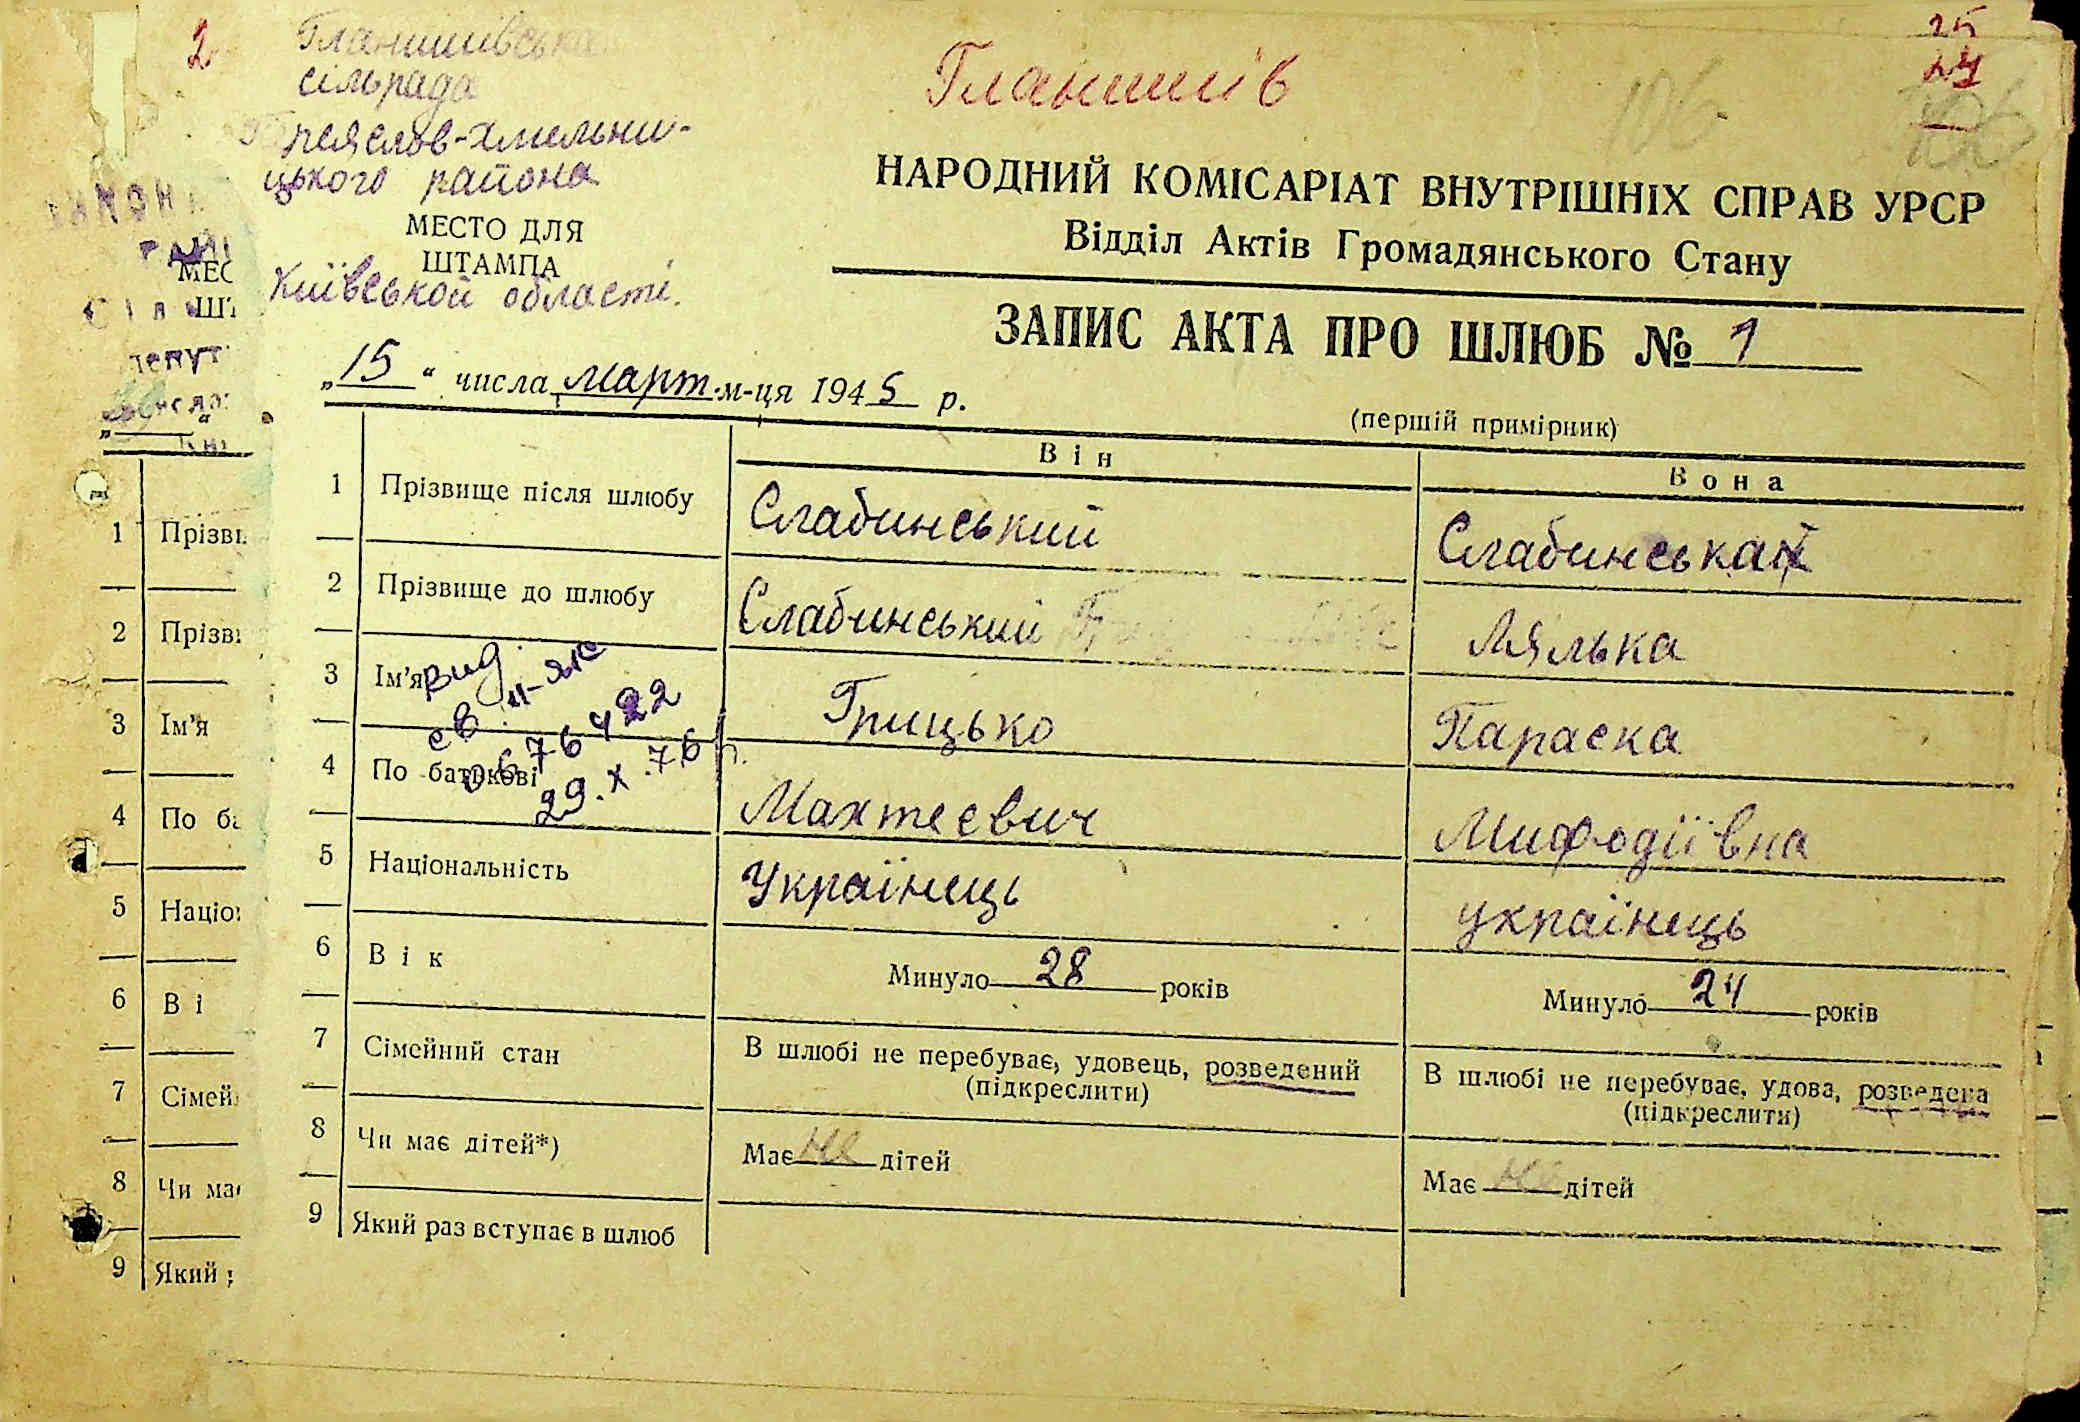 2
Гланишівська
сільрада
Переяслов-Хмельни-
цького района
МЕСТО ДЛЯ
ШТАМПА
Київської області.
Гланишів
25
24
106
НАРОДНИЙ КОМІСАРІАТ ВНУТРІШНІХ СПРАВ УРСР
Відділ Актів Громадянського Стану
ЗАПИС АКТА ПРО ШЛЮБ № 1
„15“ числа март м-ця 1945 р.
(перший примірник)
Він Вона
1 Прізвище після шлюбу Слабинський Слабинська
2 Прізвище до шлюбу Слабинський Лялька
3 Ім'я Грицько Параска
вид.
св. II-ЯК
0676422
29.X.76 р.
4 По батькові Махтеєвич Мифодіївна
5 Національність Українець українець
6 Вік Минуло 28 років Минуло 24 років
7 Сімейний стан В шлюбі не перебуває, удовець, розведений В шлюбі не перебуває, удова, розведена
(підкреслити) (підкреслити)
8 Чи має дітей*) Має не дітей Має не дітей
9 Який раз вступає в шлюб
МЕС
ШТ
1 Прізви
2 Прізв
3 Ім'я
4 По ба
5 Націо
6 Ві
7 Сімей
8 Чи ма
9 Який